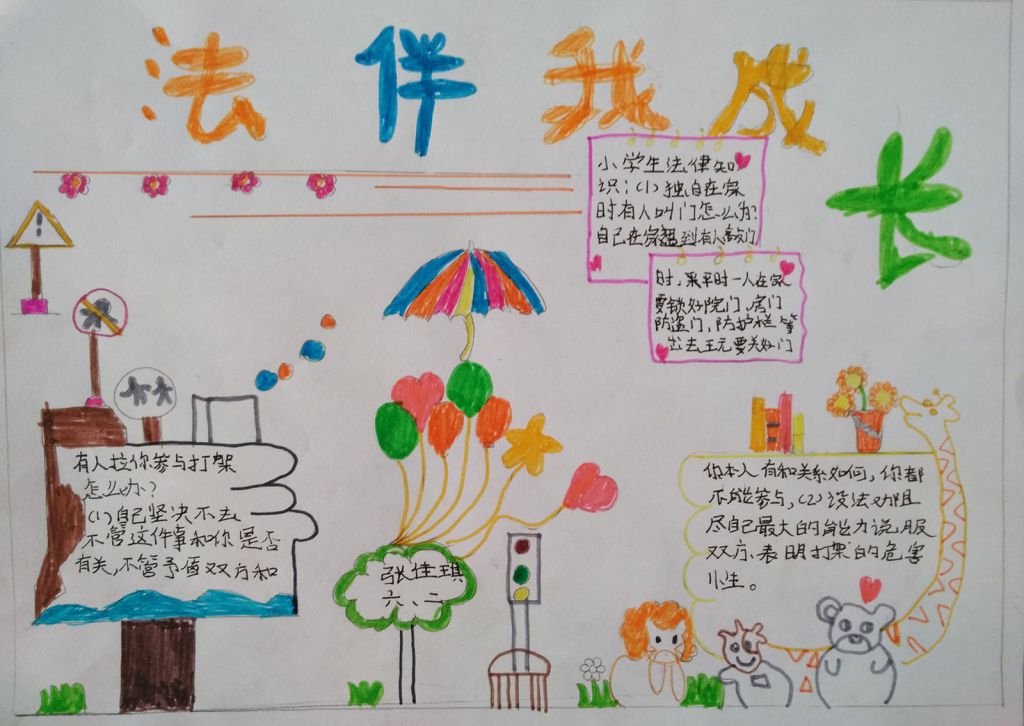 法伴我成长
小学生法律知
识：(1)独自在家
时有人叫门怎么办？
自己在家遇到有人敲门
时，果平时一人在家
要锁好院门，房门
防盗门，防护栏等
出去玩元要关好门
有人拉你参与打架
怎么办？
(1)自己坚决不去
不管这件事和你是否
有关，不管予值双方和
你本人有和关系如何，你都
不能参与，(2)设法劝阻
尽自己最大的能力说服
双方，表明打架的危害
小生。
张佳琪
六、二